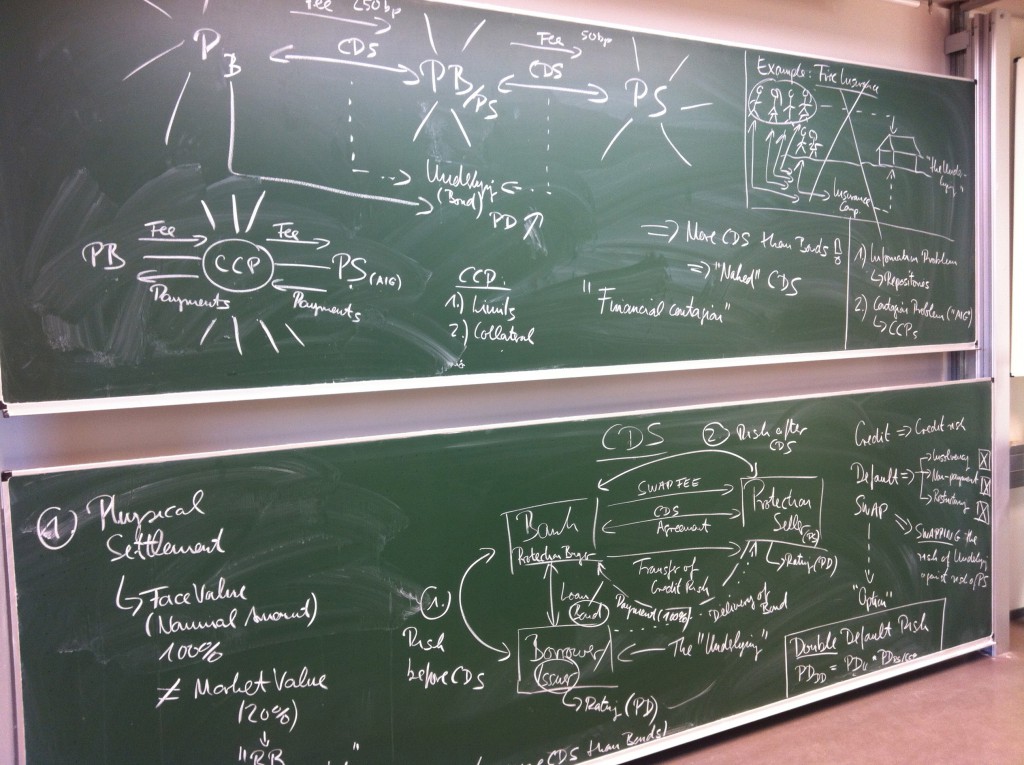 Fee 250bp
CDS
PB
PB/PS
Fee 50bp
CDS
PS
Underlying
(Bond)
PD
Example: Fire Insurance
Insurance
Comp.
PB
Fee
CCP
Fee
PS (AIG)
Payments
Payments
CCP
1.) Limits
2.) Collateral
"Financial contagion"
⇒ More CDS than Bonds
⇒ "Naked" CDS
1) Information Problem
↳ Repositories
2) Contagion Problem ("AIG")
↳ CCPs
1 Physical
Settlement
↳ Face Value
(Nominal Amount)
100%
≠ Market Value
(20%)
CDS
2. Risk after
CDS
Bank
Protection Buyer
SWAP FEE
CDS
Agreement
Transfer of
Credit Risk
Protection
Seller (PS)
↳ Rating (PD)
1.
Risk
before CDS
Loan
Bond
Payment (100%)
Delivery of
Bond
Borrower/
Issuer
← The "Underlying"
↳ Rating (PD)
CDS than Bonds!
Credit ⇒ Credit risk
Default ⇒
Insolvency
Non-payment
Restructuring
SWAP
⇒ SWAPPING the
risk of Underlying
against risk of PS
"Option"
Double Default Risk